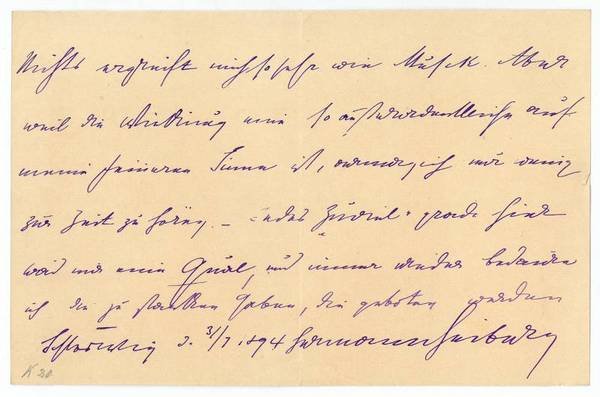 Nichts ergreift mich so sehr wie Musik. Aber
weil die Wirkung eine so außerordentliche auf
meine feineren Sinne ist, vermag ich nur wenig
zur Zeit zu hören. – Jedes Zuviel grade hier
wird mir eine Qual, und immer wieder bedaure
ich die zu starken Gaben, die geboten werden
Schleswig d. 3/7. 1894 Hermann Heiberg
K 20